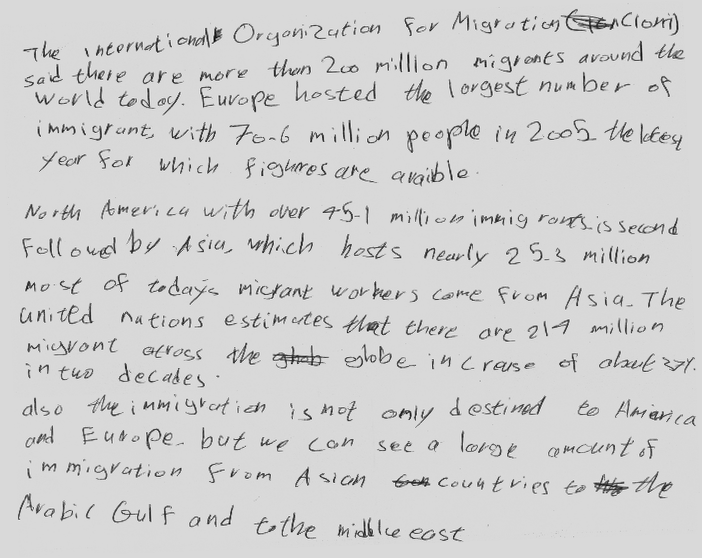 The international Organization for Migration (Iom)
said there are more than 200 million migrants around the
world today. Europe hosted the largest number of
immigrant, with 70.6 million people in 2005 the
year for which fighures are avaible.
North America with over 45.1 million immigrants is second
followed by Asia, which hosts nearly 25.3 million
most of today's migrant workers come from Asia. The
united nations estimates that there are 214 million
migrant across the globe increase of about 37%.
in two decades.
also the immigration is not only destined to America
and Europe. but we can see a large amount of
immigration from Asian countries to the
Arabic Gulf and to the middle east